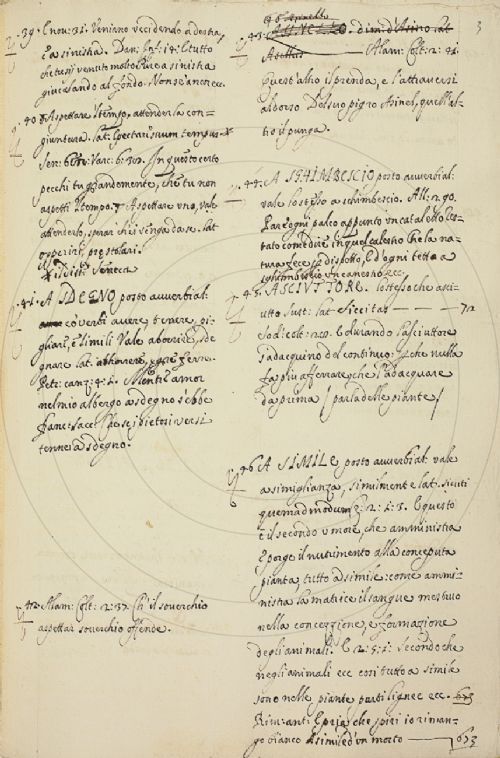 39. E nov: 31. Veniano uccidendo a destra,
e a sinistra. Dan: Inf: 14: E tutto
a sinistra
giù calando al fondo. Non se n'ancc ec.
40. Aspettare 'l tempo, attender la con=
giuntura. lat: spectare suum tempus.
Sen: Ben: Varc: 6: 30. In questo certo
pecchi tu grandemente, che tu non
aspetti 'l tempo. Aspettare uno, vale
attenderlo, sperar ch'ei venga da se. lat
opperiri, prestolari.
Seneca
41. A SDEGNO posto avverbial:
co' verbi avere, tenere, pi-
gliare, e simili vale aborrire, sde
gnare lat:
Petr: canz: 4: 2. Mentr' amor
nel mio albergo a sdegno s'ebbe
Franc: Sacc: Che se i pietosi versi
tenne a sdegno.
42. Alam: Colt: 2: 37. Ch' il soverchio
aspettar soverchio offende.
3
43. dim: d'Asino lat
Asellus Alam: Colt: 2: 41.
Quest' altro il prenda, e l'attraversi
al dorso Del suo pigro Asinel, quell' al-
tro il punga.
44. A SCHIMBESCIO posto avverbial:
vale lo stesso a schimbescio. All: 290.
Par' ogni palco appunto un cataletto
tato com' è dir, in quel calestro Che la na-
tura fece sì disposto, Ed ogni tetto a
schimbescio un canestro ec.
45. ASCIUTTORE. lo stesso che asci-
utto Sust: lat Siccitas 72
Sod: colt: 120. Edurando l'asciuttore
l'adacquino del continovo: che nulla
fa più afferrare, che l'adacquare
da prima / parla delle piante /
46 A SIMILE posto avverbial: vale
a simiglianza, similmente lat. sicuti
quemadmodum 2: 1: 3. E questo
è il secondo umore, che amministra
E porge il nutrimento alla conceputa
pianta, tutto a simile: come ammi-
nistra la matrice il sangue mestruo
nella concezzione, e formazione
degli animali. E 2: 5: 1: Secondo che
negli animali ecc così tutto a simile
sono nelle piante parti lignee ecc. 673
Rim: ant: E pria, che
go bianco A simile d'un morto 673